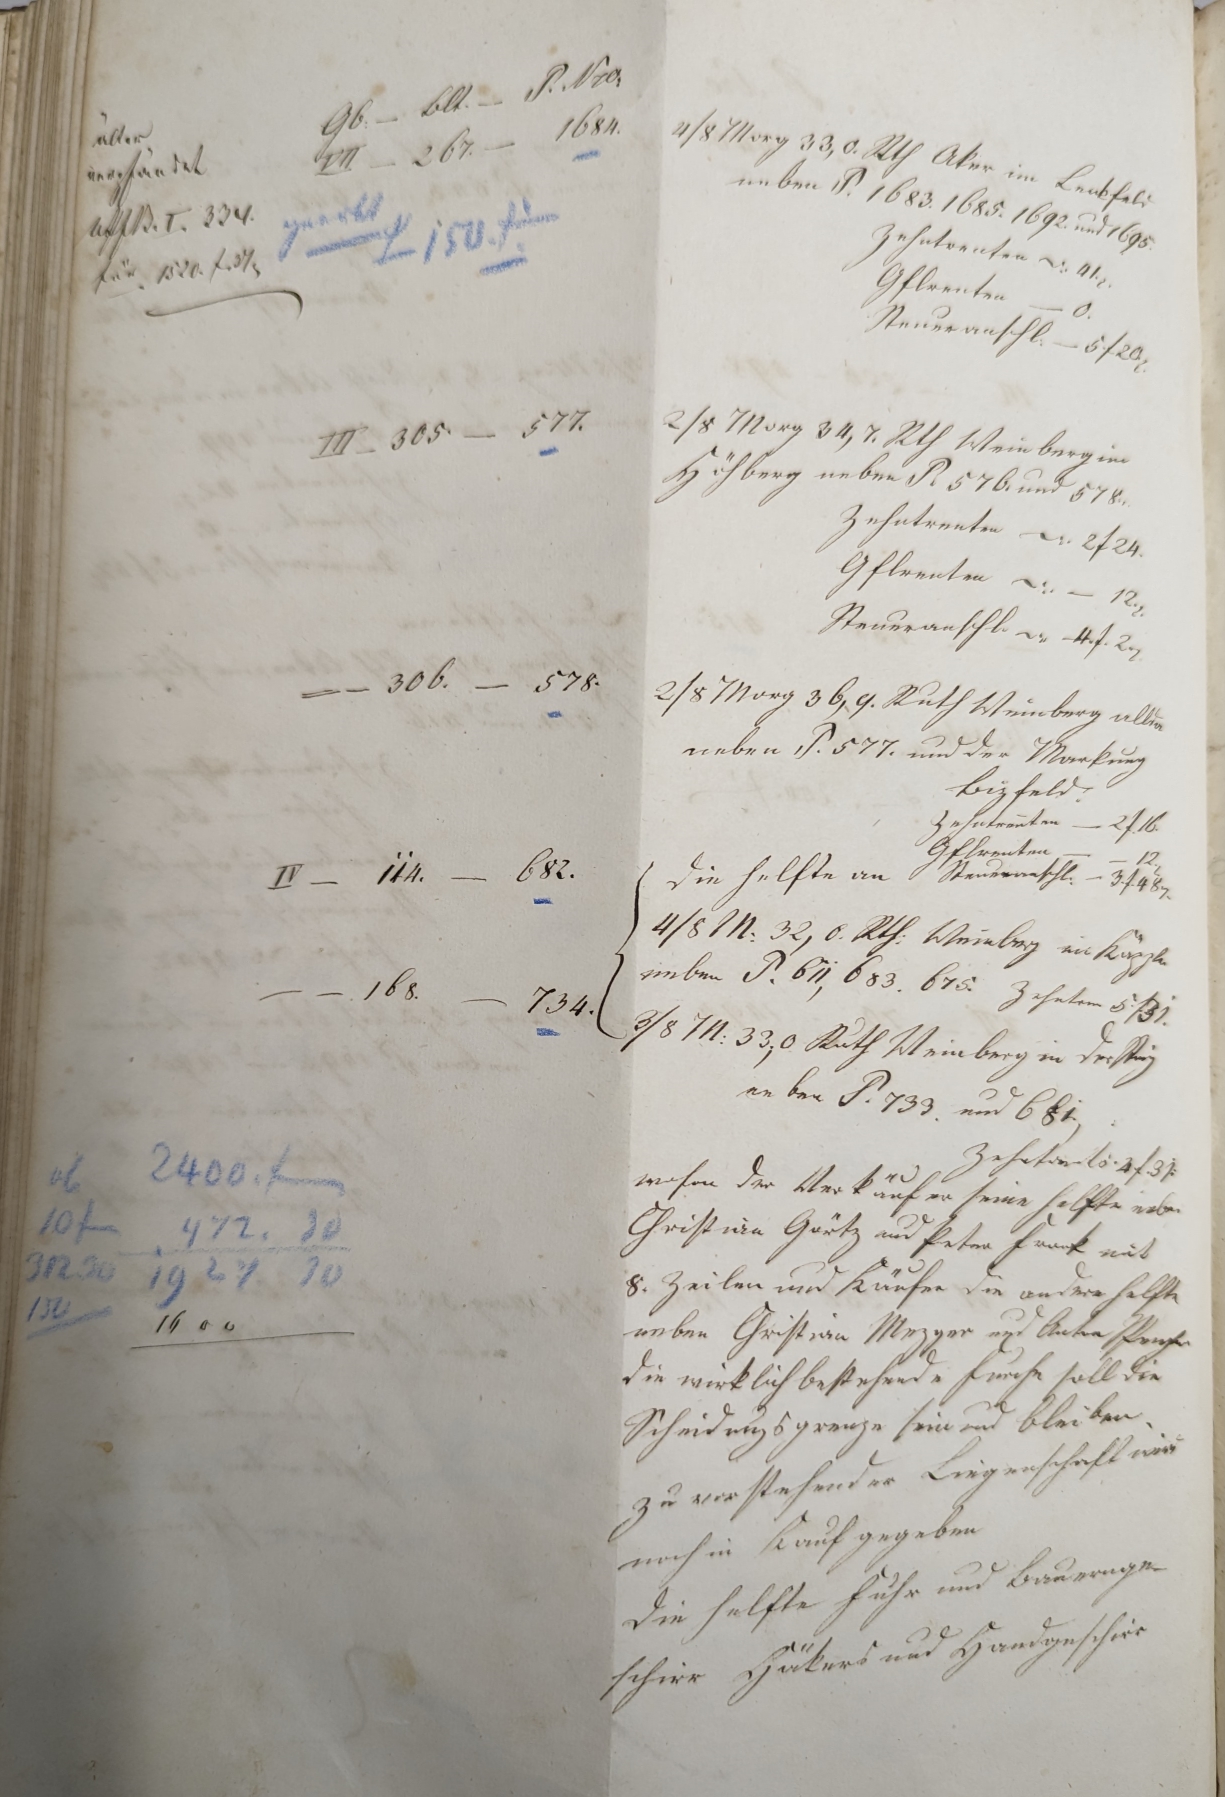 Gb. — Blt. — P. Nro.
älter
verpfändet
U.Pf.B. T. 334.
für 1520. f. 37
VII — 267. — 1684.
150. f.
4/8 Morg 33,0. Rth Aker im
neben P. 1683. 1685. 1692. und 1695.
Zehntrenten 41.
Gflrenten — 0.
Steueranschl. — 5 f 20
III — 305 — 577.
2/8 Morg 34,7. Rth Weinberg im
Höhberg neben P. 576. und 578.
Zehntrenten 2 f 24.
Gflrenten — 12.
Steueranschl. 4 f. 2
— — 306. — 578.
2/8 Morg 36,9. Ruth Weinberg allda
neben P. 577. und der Markung
Bizfeld.
Zehntrenten — 2 f. 16.
Gflrenten — — 12.
Steueranschl. — 3 f. 48
IV — 114. — 682.
die helfte an
4/8 M: 32,0. Rth: Weinberg im
neben P. 671, 683. 675. Zehntren 5 f 31.
— — 168. — 734.
3/8 M: 33,0 Ruth Weinberg in der Staig
neben P. 733. und 681,
Zehntrente 4 f 3
wofon der Verkäufer seine helfte neben
Christian Görtz und Peter Frank mit
8. Zeilen und Käufer die andere helfte
neben Christian Mezger und Anton
die wirklich bestehende Furche soll die
Scheidungsgrenze sein und bleiben.
zu vorstehender Liegenschaft wird
noch in Kauf gegeben
die helfte Fuhr und Bauernge-
schirr Häkers und Handgeschirr
ab 2400. f
10 f 472. 30
312.30 1927 30
150
1600